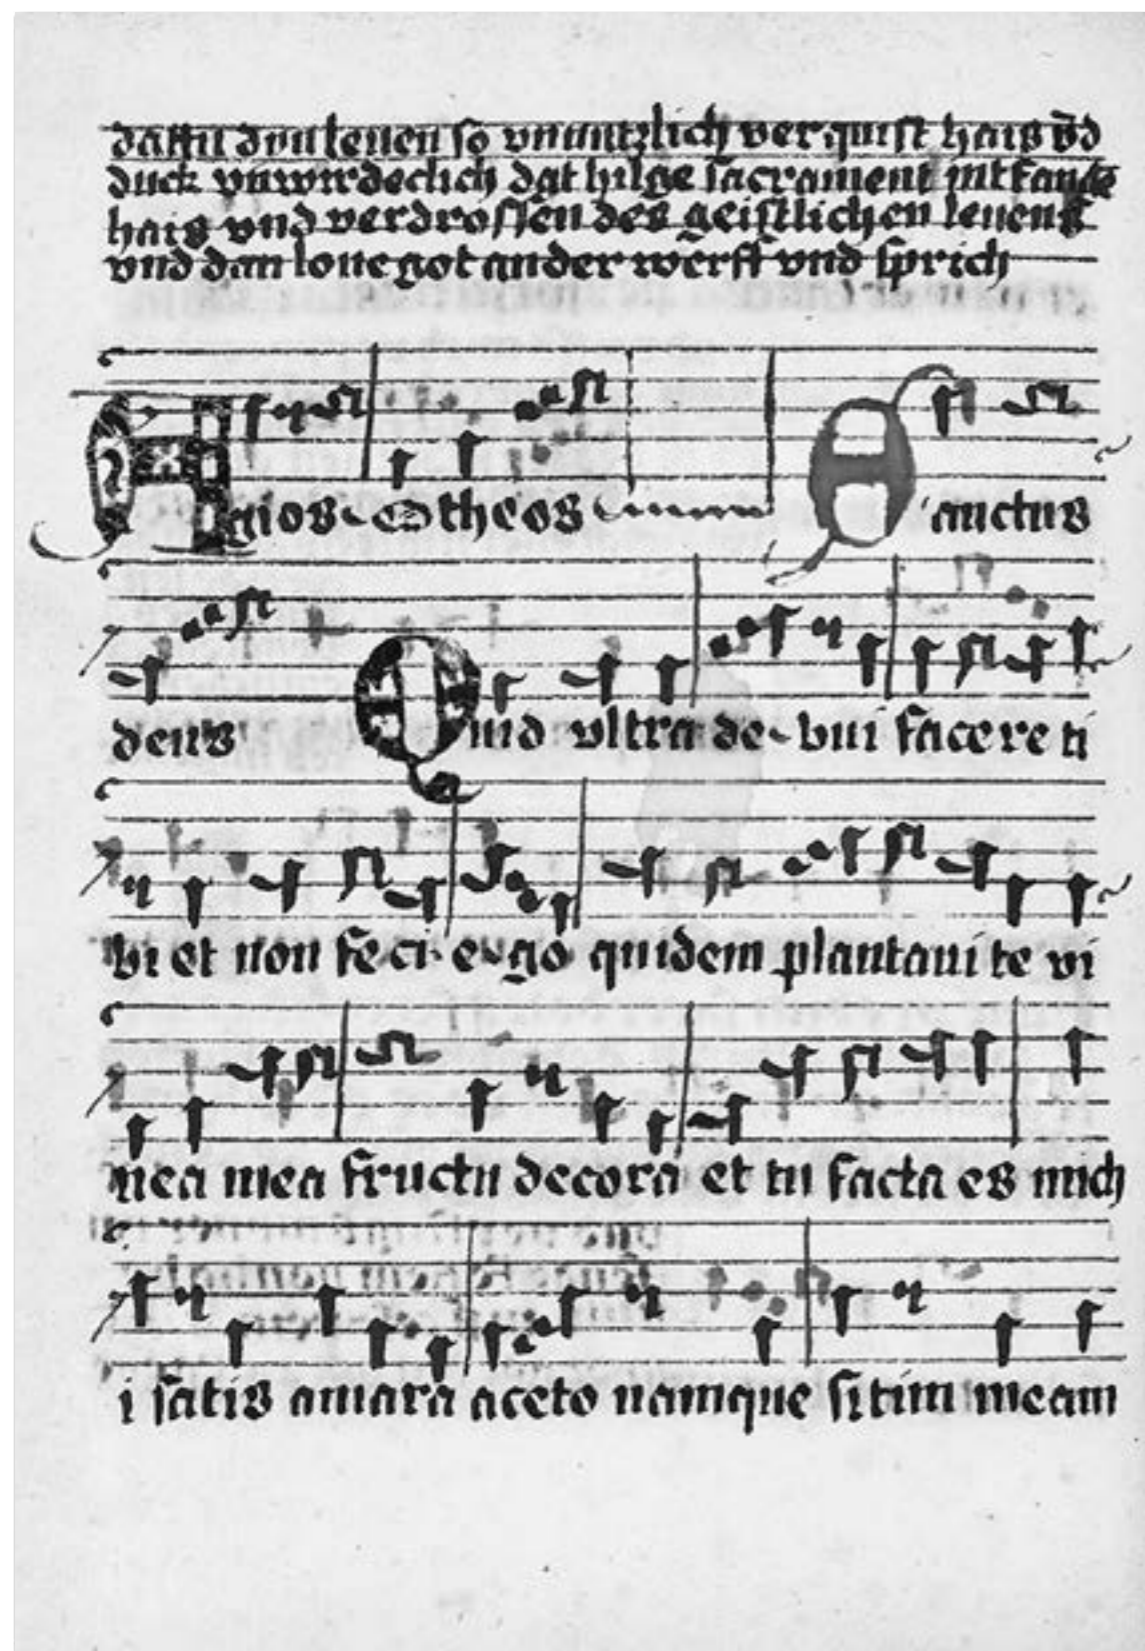 dattu dyn leuen so vnnutzlich verquist hais vnd
duck vnwirdeclich dat hilge sacrament intfange
hais vnd verdrossen des geistlichen leuens
vnd dan loue got ander werff vnd sprich
Agios O theos Sanctus
deus Quid vltra de bui facere ti
bi et non feci ego quidem plantaui te vi
nea mea fructu decora et tu facta es mich
i satis amara aceto namque sitim meam